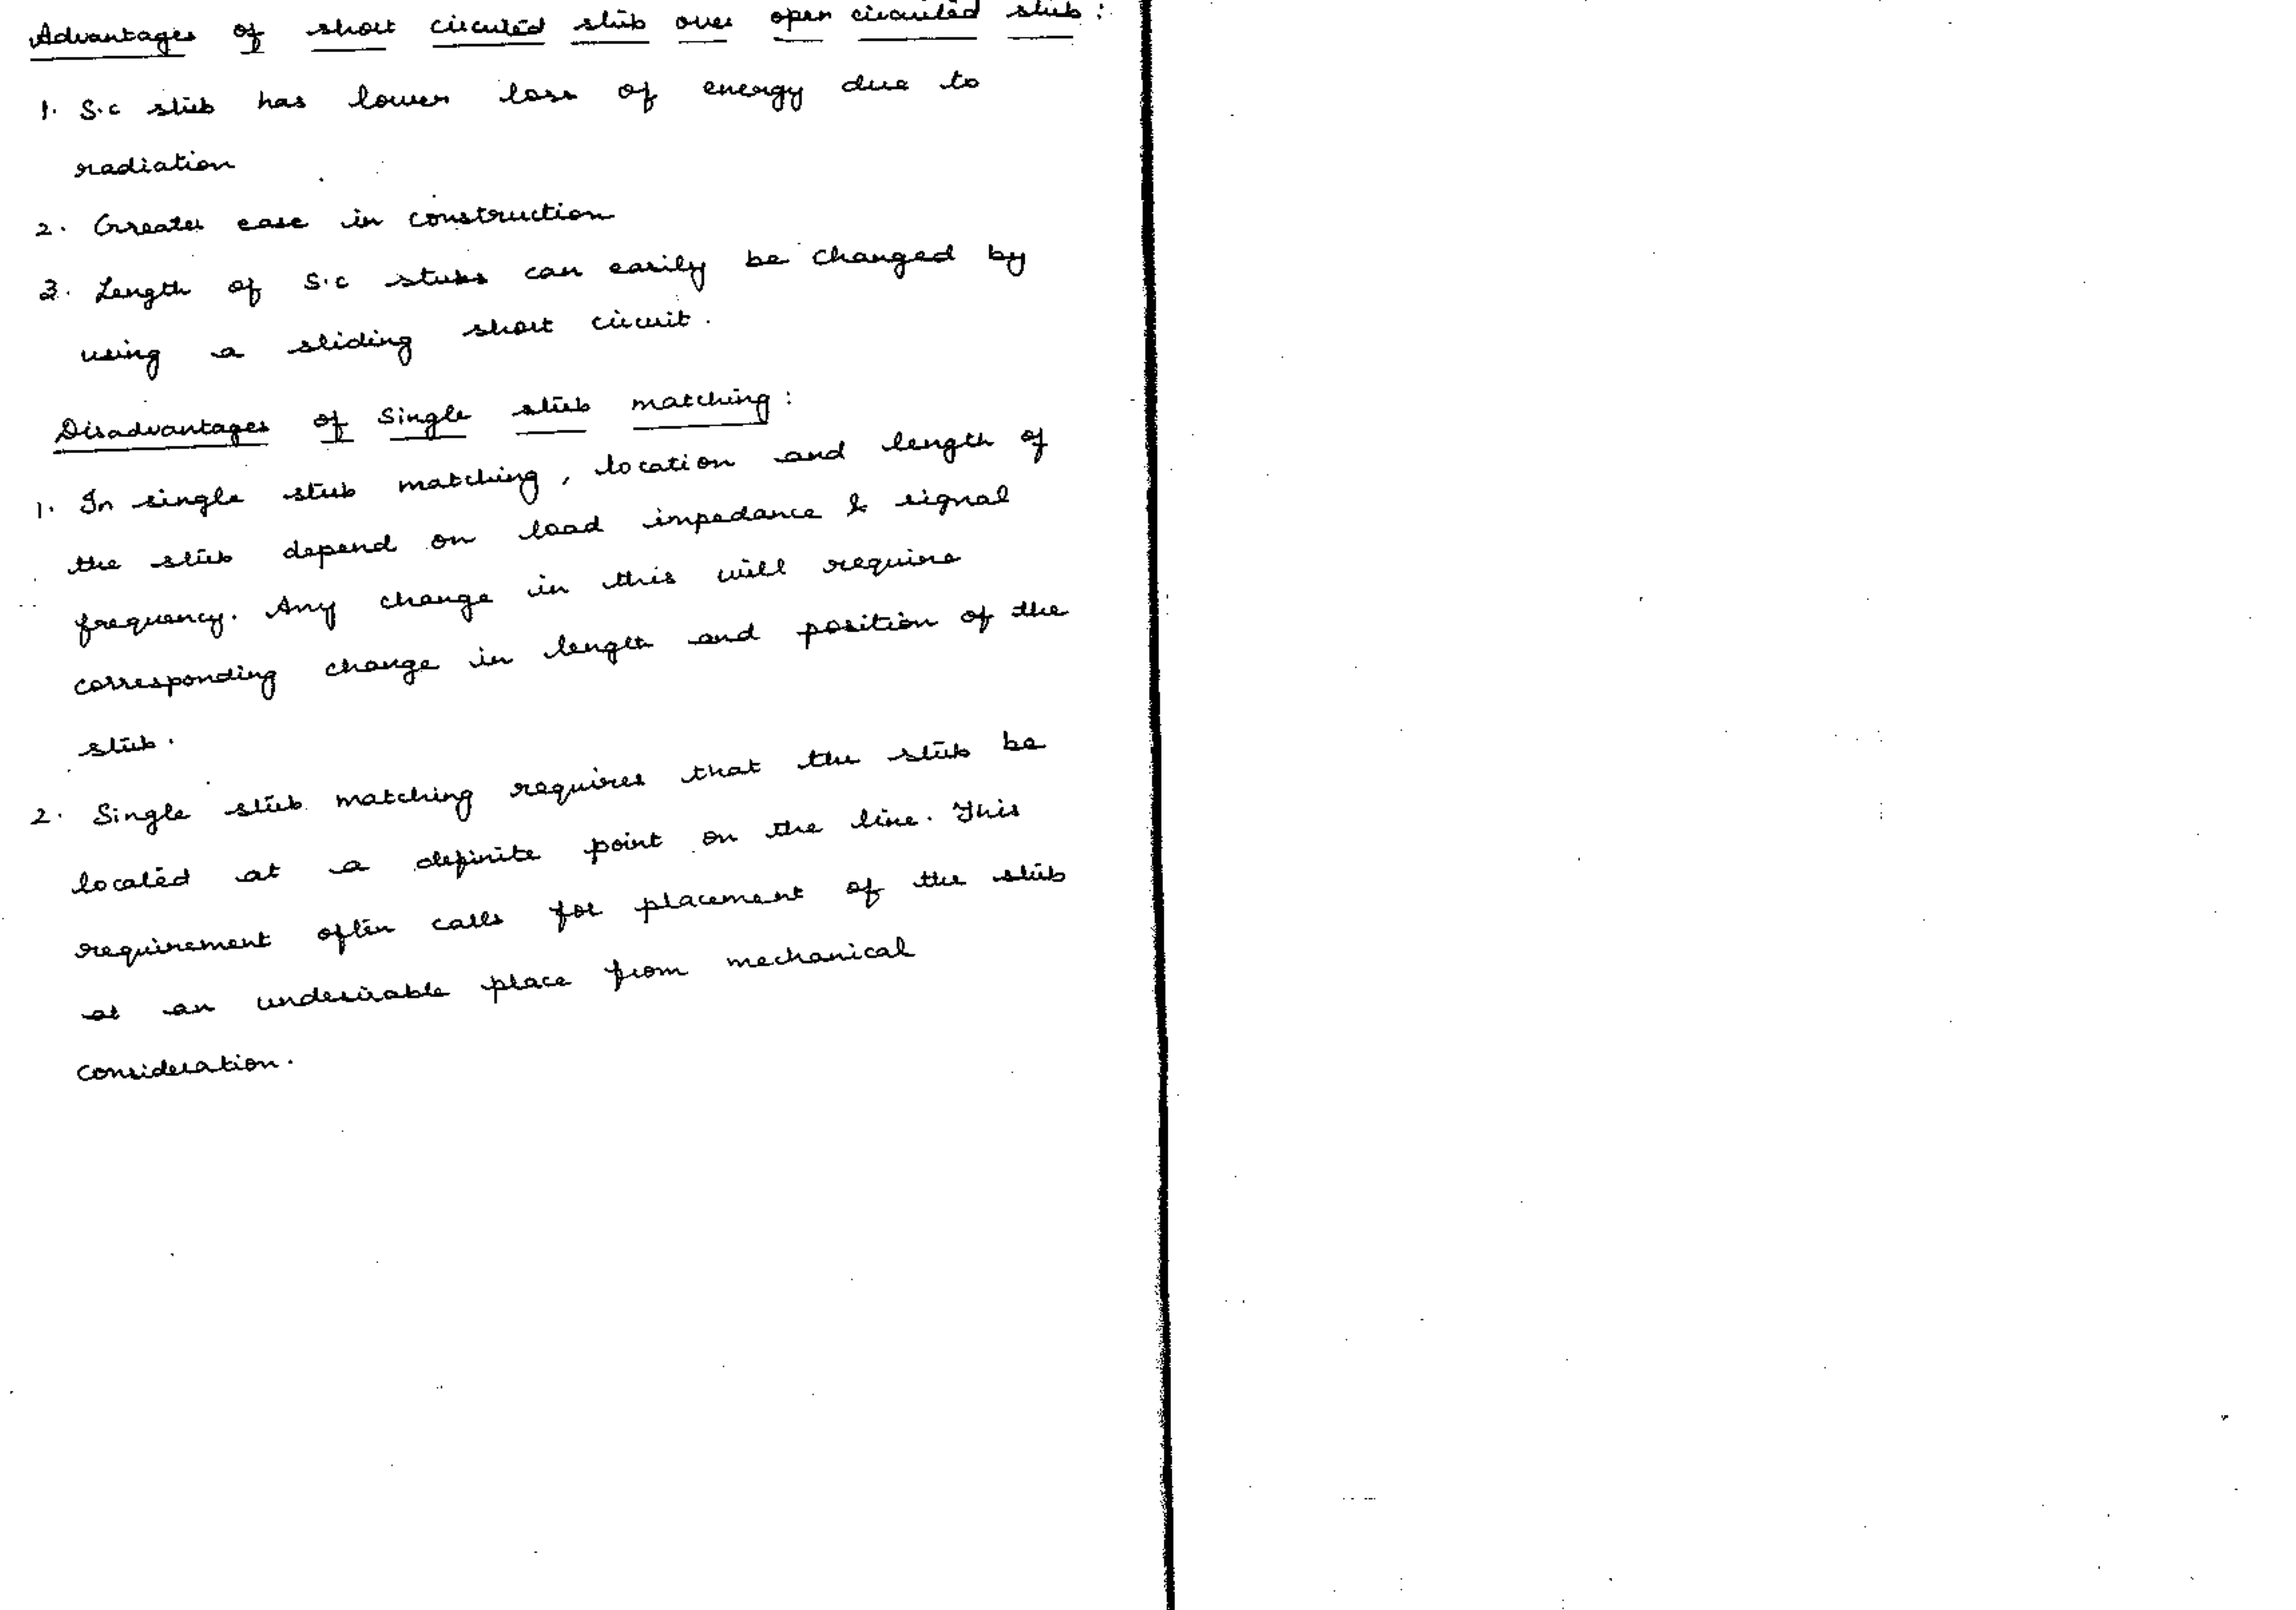 Advantages of short circuited stub over open circuited stub :
1. S.c stub has lower loss of energy due to
radiation
2. Greater ease in construction
3. Length of S.c stubs can easily be changed by
using a sliding short circuit.
Disadvantages of Single stub matching :
1. In single stub matching, location and length of
the stub depend on load impedance & signal
frequency. Any change in this will require
corresponding change in length and position of the
stub.
2. Single stub matching requires that the stub be
located at a definite point on the line. This
requirement often calls for placement of the stub
at an undesirable place from mechanical
consideration.